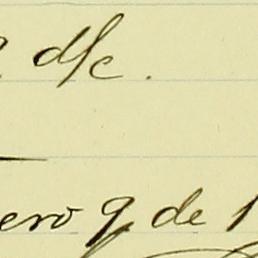 d/c.
ero 9 de 1